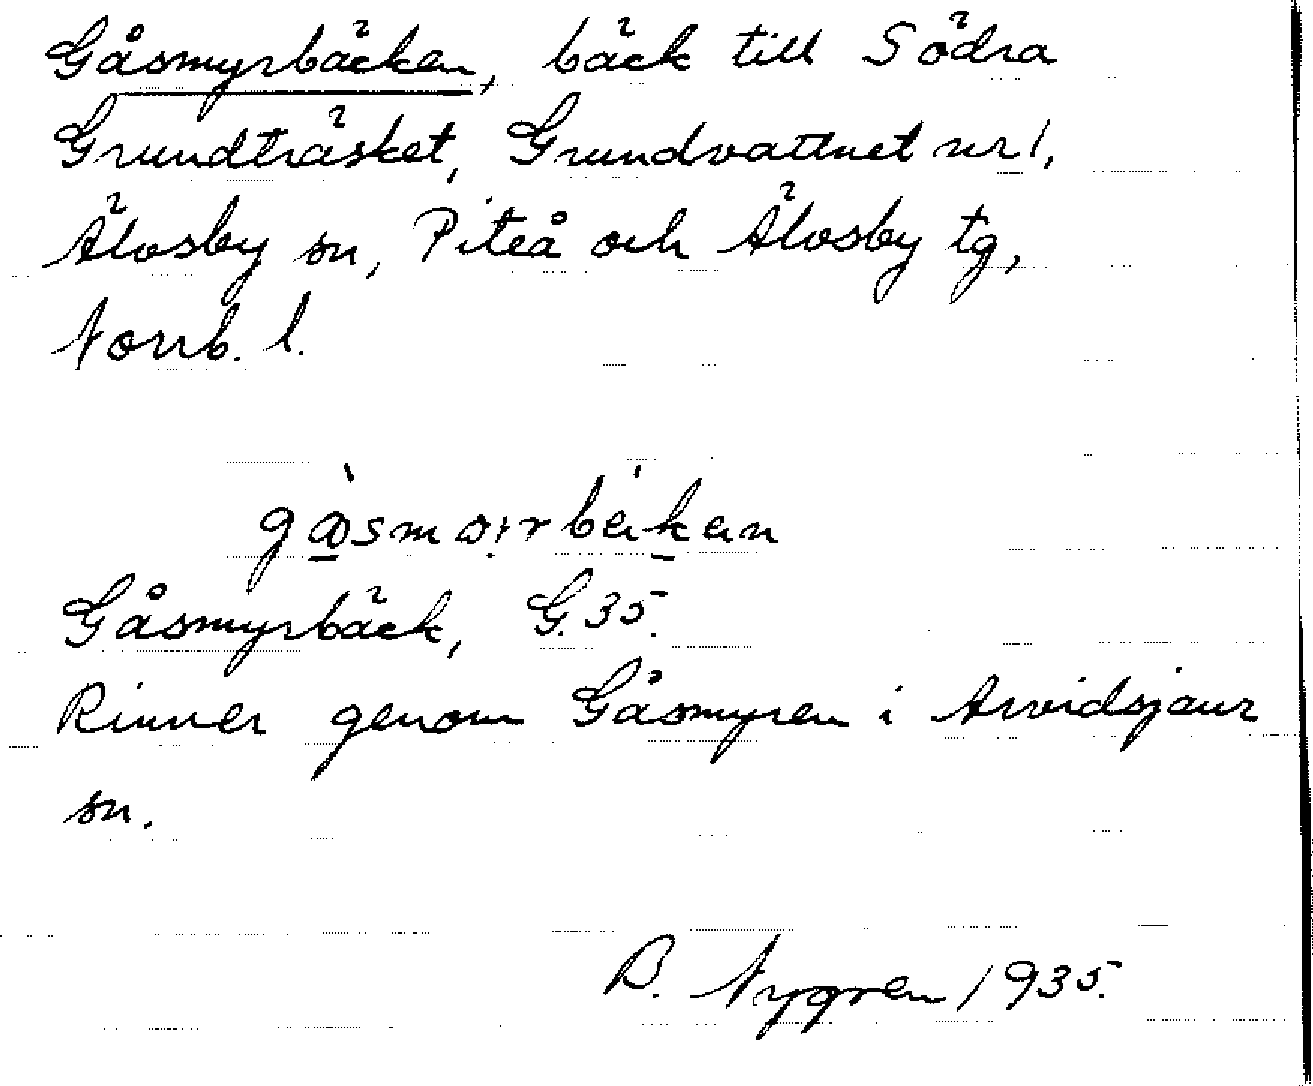 Gåsmyrbäcken, bäck till Södra
Grundträsket, Grundvattnet nr 1,
Älvsby sn, Piteå och Älvsby tg,
Norrb. l.
Gåsmyrbäck, G. 35.
Rinner genom Gåsmyren i Arvidsjaur
sn.
B. Nygren 1935.